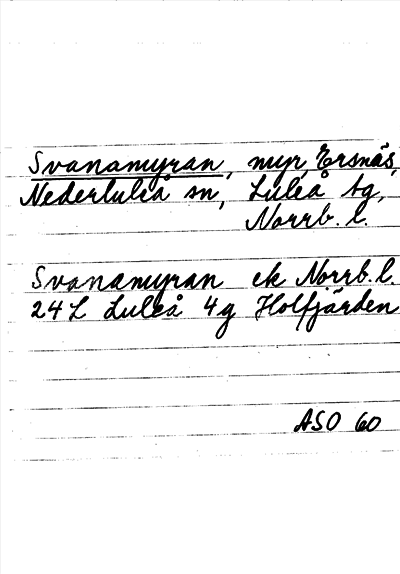 Svanamyran, myr, Ersnäs,
Nederluleå sn, Luleå tg,
Norrb. l.
Svanamyran ek Norrb. l.
24 L Luleå 4g Holfjärden
ASO 60